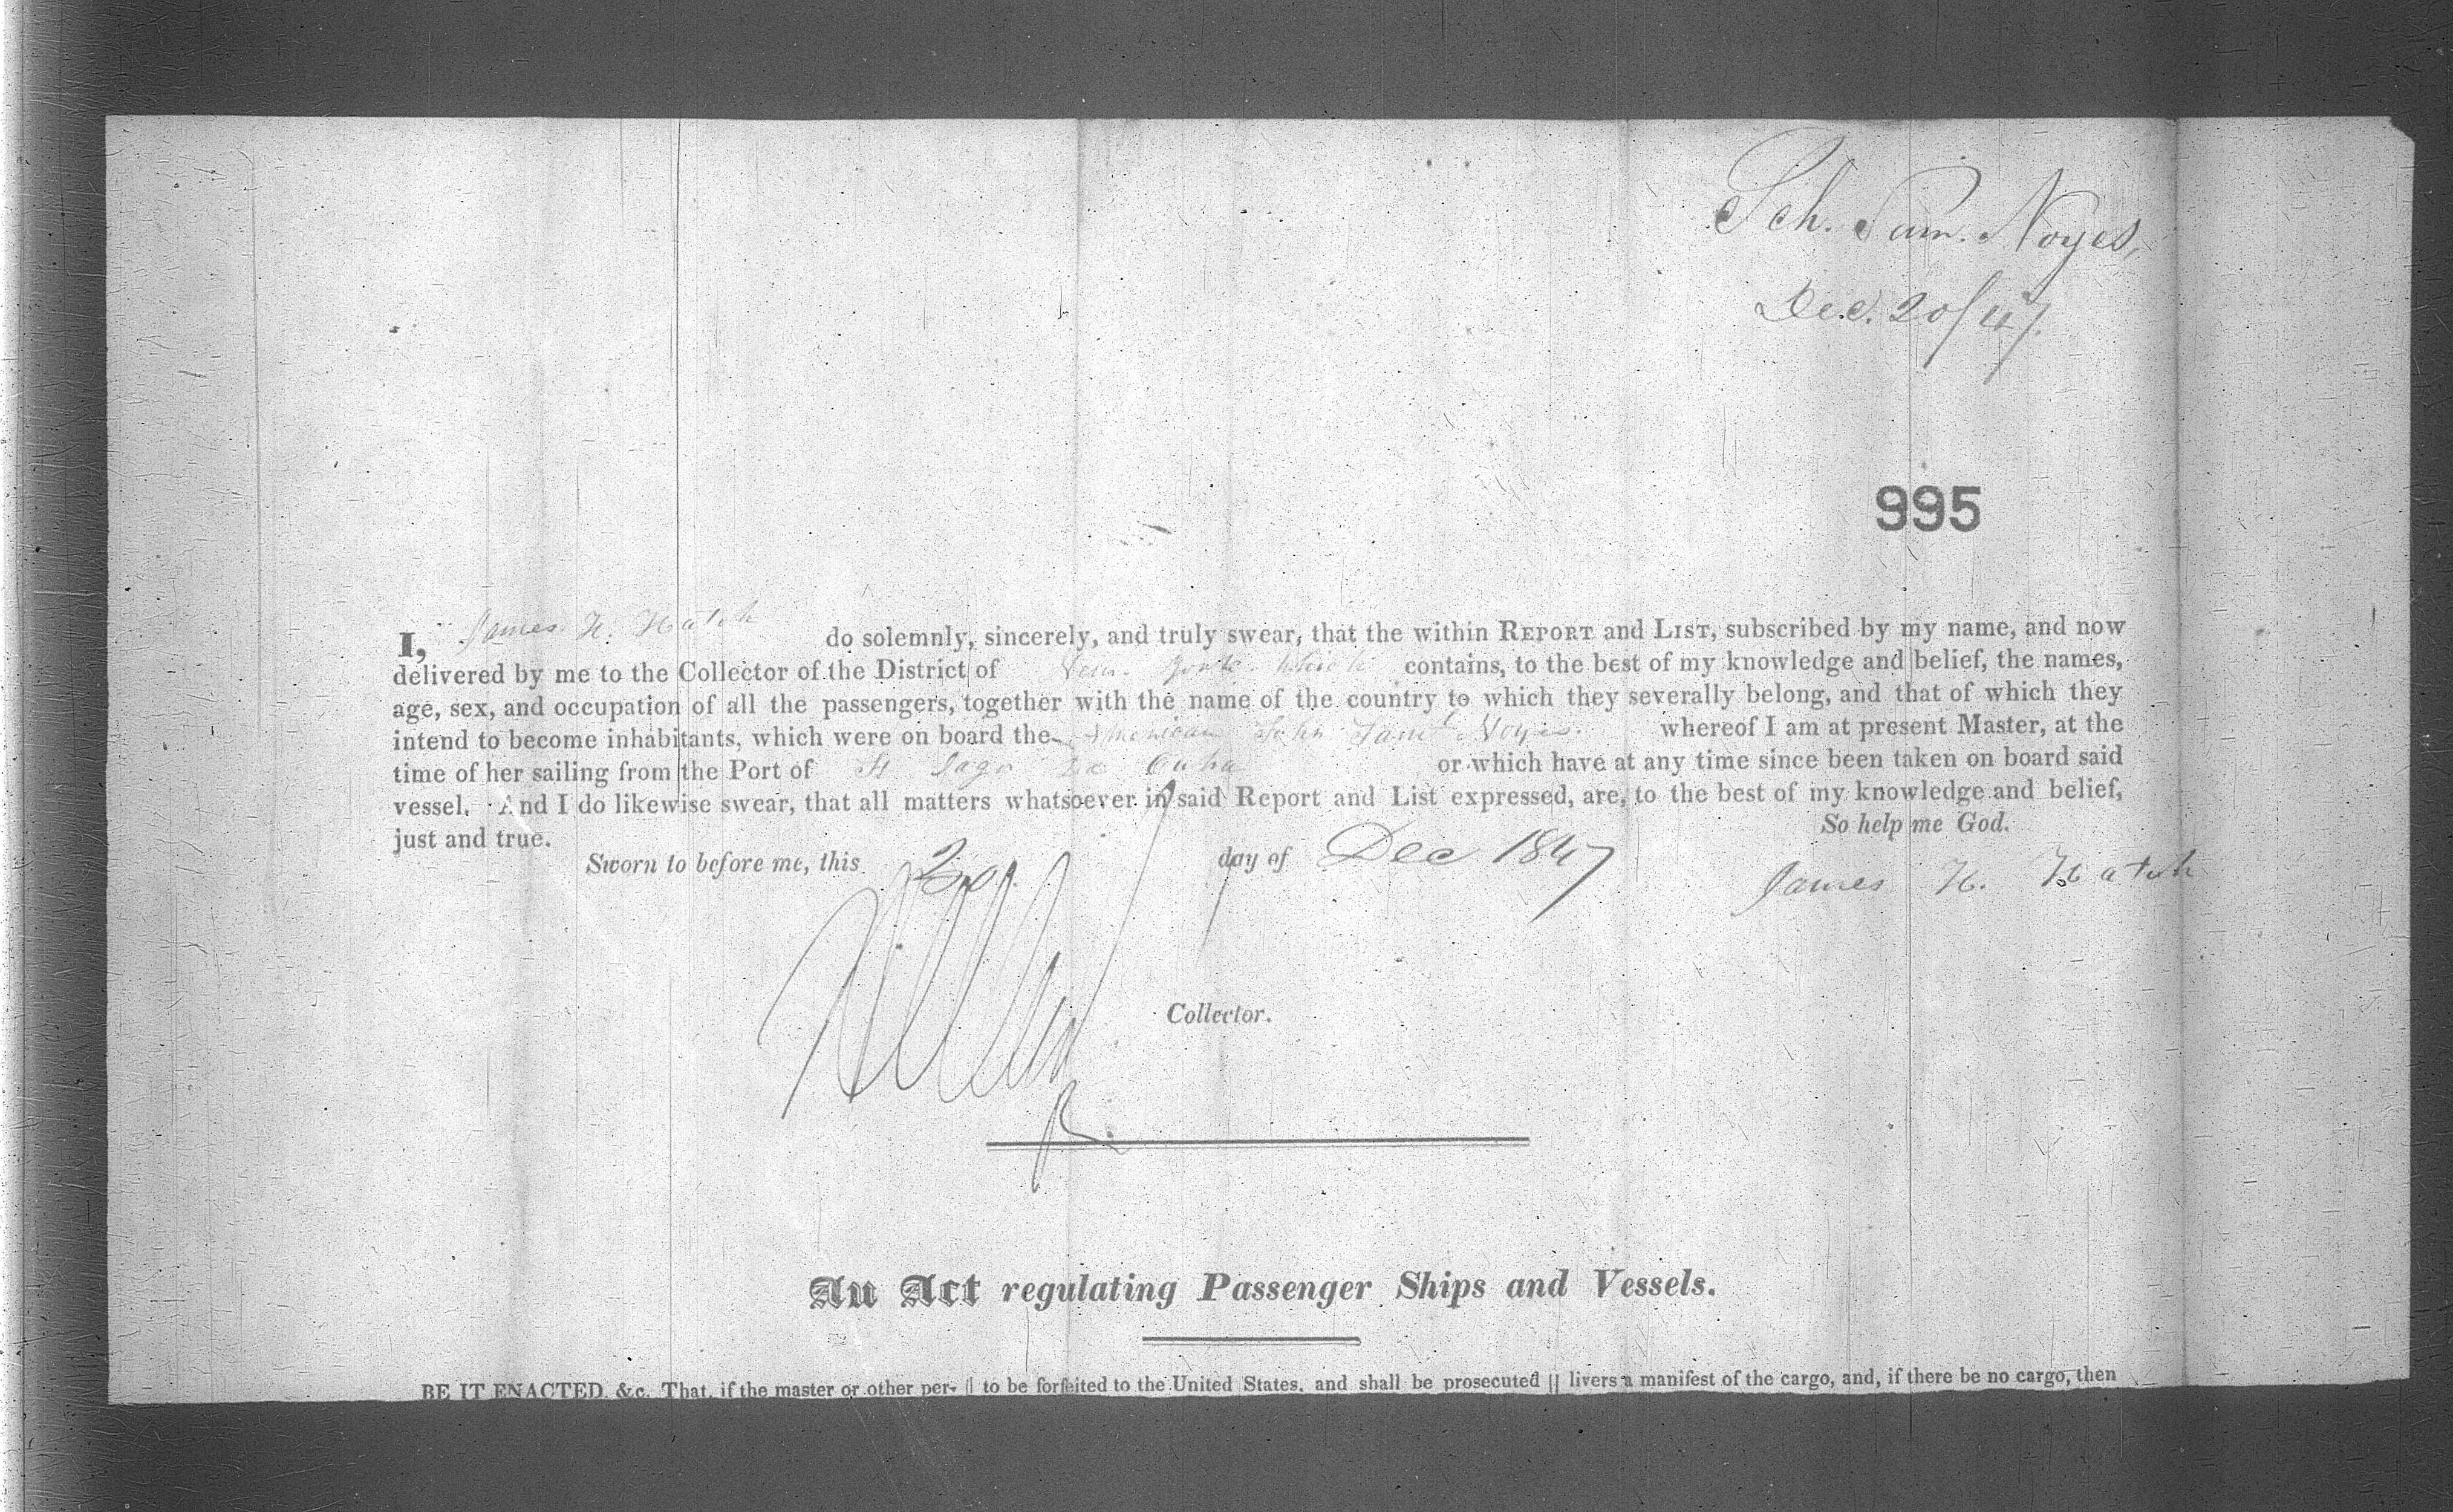 Sch. Sam. Noyes,
Dec. 20/47.
995
I, James H. Hatch do solemnly, sincerely, and truly swear, that the within REPORT and LIST, subscribed by my name, and now
delivered by me to the Collector of the District of New York which contains, to the best of my knowledge and belief, the names,
age, sex, and occupation of all the passengers, together with the name of the country to which they severally belong, and that of which they
intend to become inhabitants, which were on board the American Schr Saml Noyes. whereof I am at present Master, at the
time of her sailing from the Port of St Jago De Cuba or which have at any time since been taken on board said
vessel. And I do likewise swear, that all matters whatsoever in said Report and List expressed, are, to the best of my knowledge and belief,
just and true. So help me God.
Sworn to before me, this 20 day of Dec 1847 James H. Hatch
Collector.
An Act regulating Passenger Ships and Vessels.
BE IT ENACTED, &c. That, if the master or other per- || to be forfeited to the United States, and shall be prosecuted || livers a manifest of the cargo, and, if there be no cargo, then